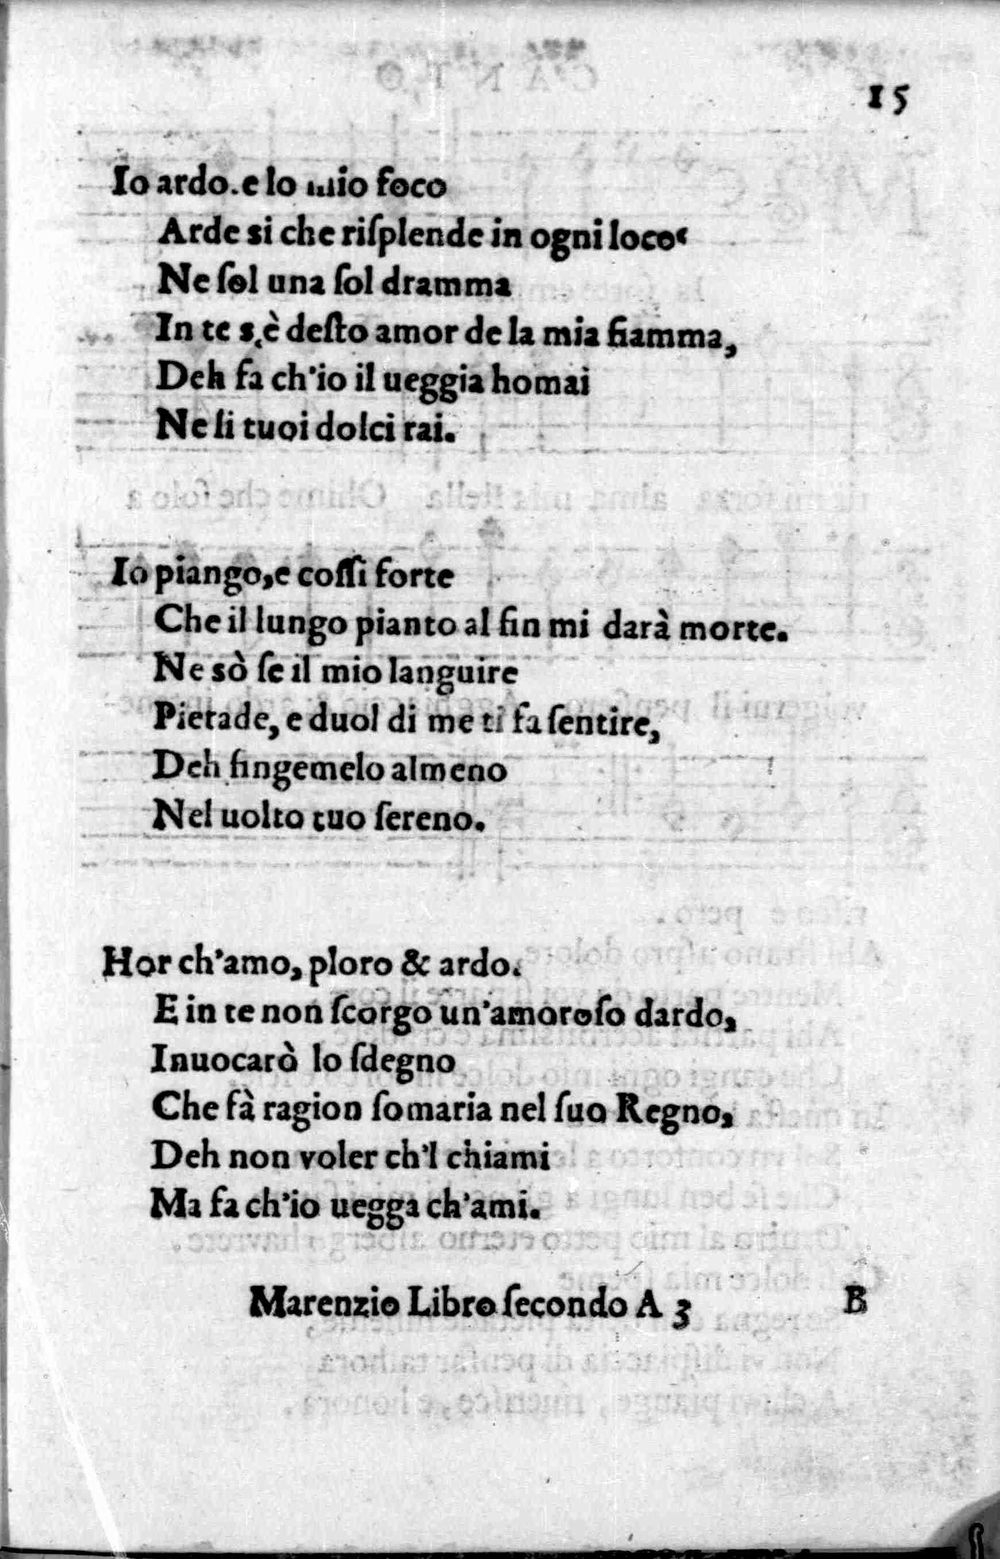 15
Io ardo.e lo mio foco
Arde si che riſplende in ogni loco
Ne ſol una ſol dramma
In te s,è deſto amor de la mia fiamma,
Deh fa ch'io il ueggia homai
Ne li tuoi dolci rai.
Io piango,e coſſi forte
Che il lungo pianto al fin mi darà morte.
Ne sò ſe il mio languire
Pietade, e duol di me ti fa ſentire,
Deh fingemelo almeno
Nel uolto tuo ſereno.
Hor ch'amo, ploro & ardo.
E in te non ſcorgo un'amoroſo dardo,
Inuocarò lo ſdegno
Che fà ragion ſomaria nel ſuo Regno,
Deh non voler ch'l chiami
Ma fa ch'io uegga ch'ami.
Marenzio Libro ſecondo A 3 B